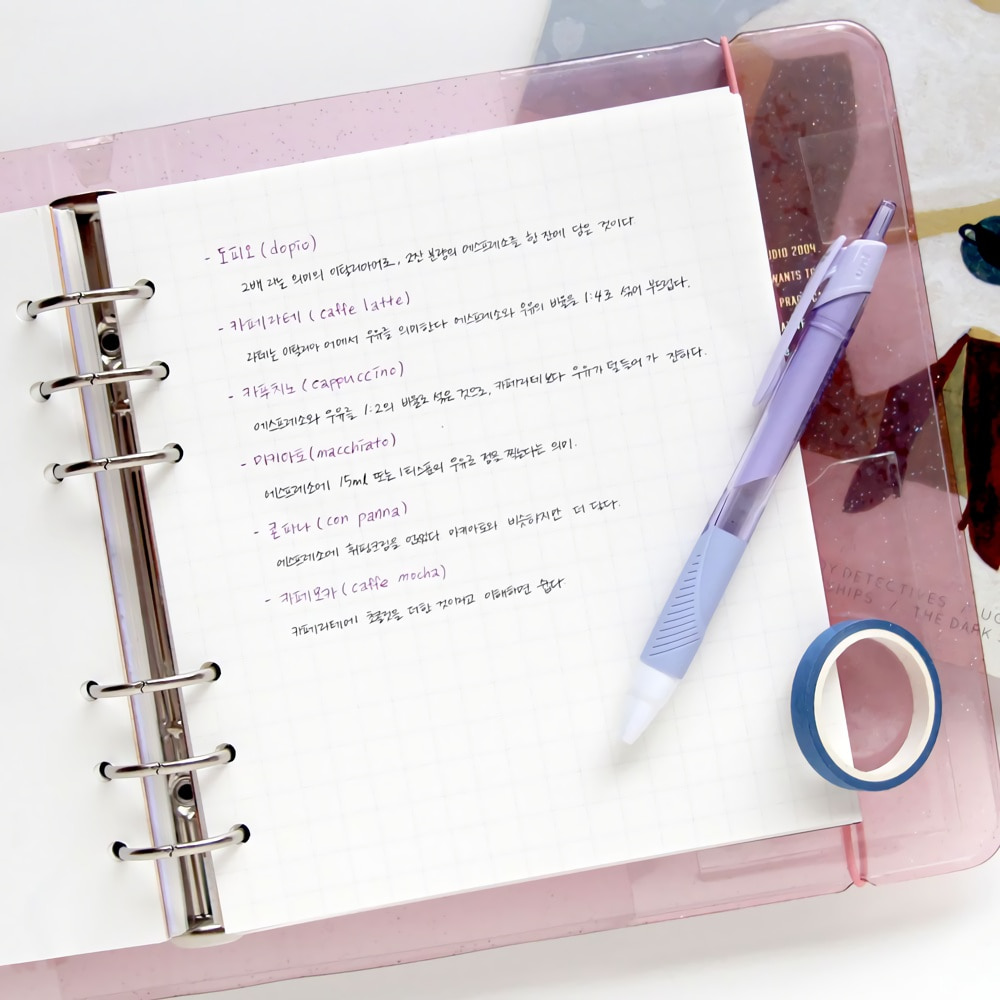 - 도피오 (dopio)
2배 라는 의미의 이탈리아어로, 2잔 분량의 에스프레소를 한 잔에 담은 것이다
- 카페라떼 (caffe latte)
라떼는 이탈리아 어에서 우유를 의미한다 에스프레소와 우유의 비율을 1:4로 섞어 부드럽다.
- 카푸치노 (cappuccino)
에스프레소와 우유를 1:2의 비율로 섞은 것으로, 카페라떼 보다 우유가 덜 들어가 진하다.
- 마키아또 (macchiato)
에스프레소에 15ml 또는 1티스푼의 우유로 점을 찍는다는 의미.
- 콘파나 (con panna)
에스프레소에 휘핑크림을 얹었다 마키아또와 비슷하지만 더 달다.
- 카페모카 (caffe mocha)
카페라떼에 초콜릿을 더한 것이라고 이해하면 쉽다
UDIO 2004
WANTS TO
PRACTIC
Y DETECTIVES /
HIPS / THE DARK
uni